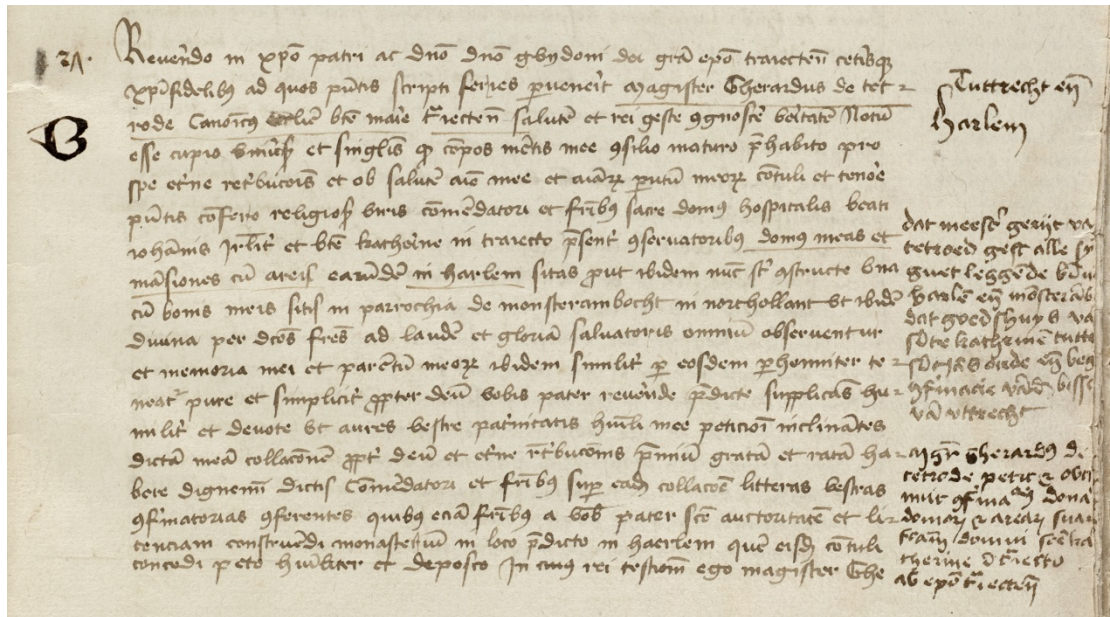 24.
Reverendo in xpo patri ac dno dno gwydoni dei gra epo traiecten ceterisque
xpifidelibus ad quos pntis scripti series pervenerit magister Gherardus de tet
rode Canonicus ecclie bte marie Traiecten salute et rei geste cognoscere veritate Notu
esse cupio universis et singulis qd compos mentis mee consilio maturo prehabito pro
spe eterne retribucois et ob salute aie mee et aiarum parentum meorum contuli et tenore
pntis confero religiosis viris comendatori et fribus sacre domus hospitalis beati
iohannis Jrlmit et bte katherine in traiecto presentis conservatoribus domus meas et
mansiones cu areis earunde in harlem sitas prout ibidem nunc sunt constructe una
cu bonis meis sitis in parrochia de monsterambocht in northollant ut ibide
divina per dcos fres ad laude et gloria salvatoris omniu observentur
et memoria mei et parentu meorum ibidem similit per eosdem perhenniter te
neatur pure et simplicit propter deu vobis pater reverende predicte supplicans hu
milit et devote ut aures vestre paternitatis humili mee peticioni inclinantes
dicta mea collacone propter deu et eterne retribucois premiu grata et rata ha
bere dignemini dictis Comendatori et fribus super eadem collacoe litteras vestras
confirmatorias conferentes quibus ecia fribus a vob pater scte auctoritate et li
cenciam construendi monasteriu in loco predicto in haerlem que eisdem contuli
concedi peto humiliter et deposco In cuius rei testiom ego magister Ghe
Tuttrecht en
Harlem
dat meester gerijt va
tetroed geft alle sy
guet leggende bin
harle en monsteramb
dat goedshuys va
sinte katherine tutte
oirde en
confirmacie vade bissc
va uttrecht
magr gherardus de
tetrode petit et obti
nuit confirmacionem dona
domorum et arearum suar
factam domui sce ka
therine in traiecto
ab epo traiecten